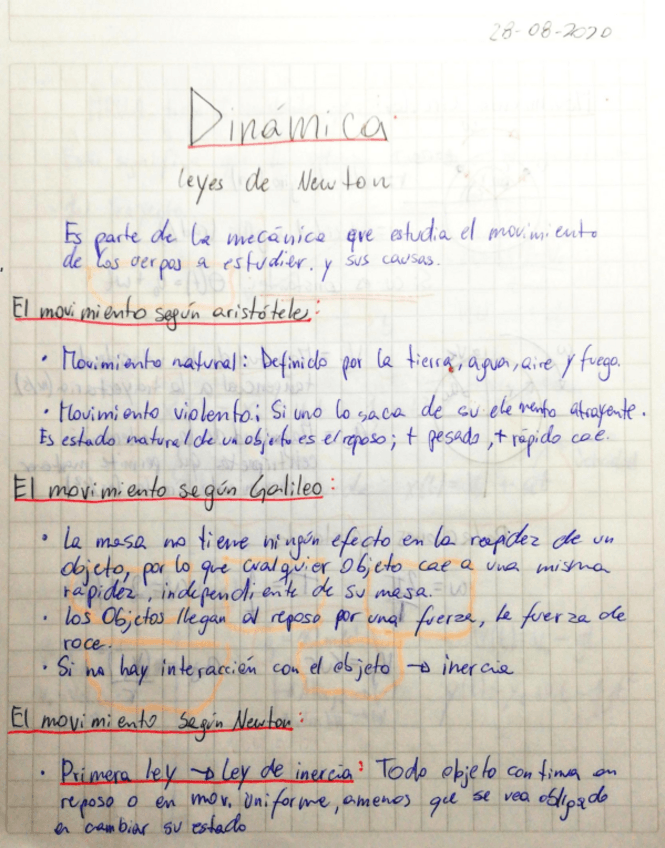 28-08-2020
Dinámica
Leyes de Newton
Es parte de la mecánica que estudia el movimiento
de los cerpos a estudier. y sus causas.
El movimiento según aristóteles:
• Movimiento natural: Definido por la tierra, agua, aire y fuego.
• Movimiento violento: Si uno lo saca de su elemento atrayente.
Es estado natural de un objeto es el reposo; + pesado, + rápido cae.
El movimiento según Galileo:
• La masa no tiene ningún efecto en la rapidez de un
objeto, por lo que cualquier Objeto cae a una misma
rapidez, independiente de su masa.
• Los Objetos llegan al reposo por una fuerza, la fuerza de
roce.
• Si no hay interacción con el objeto → inercia
El movimiento según Newton:
• Primera ley → Ley de inercia: Todo objeto continua en
reposo o en mov. Uniforme, amenos que se vea obligado
en cambiar su estado